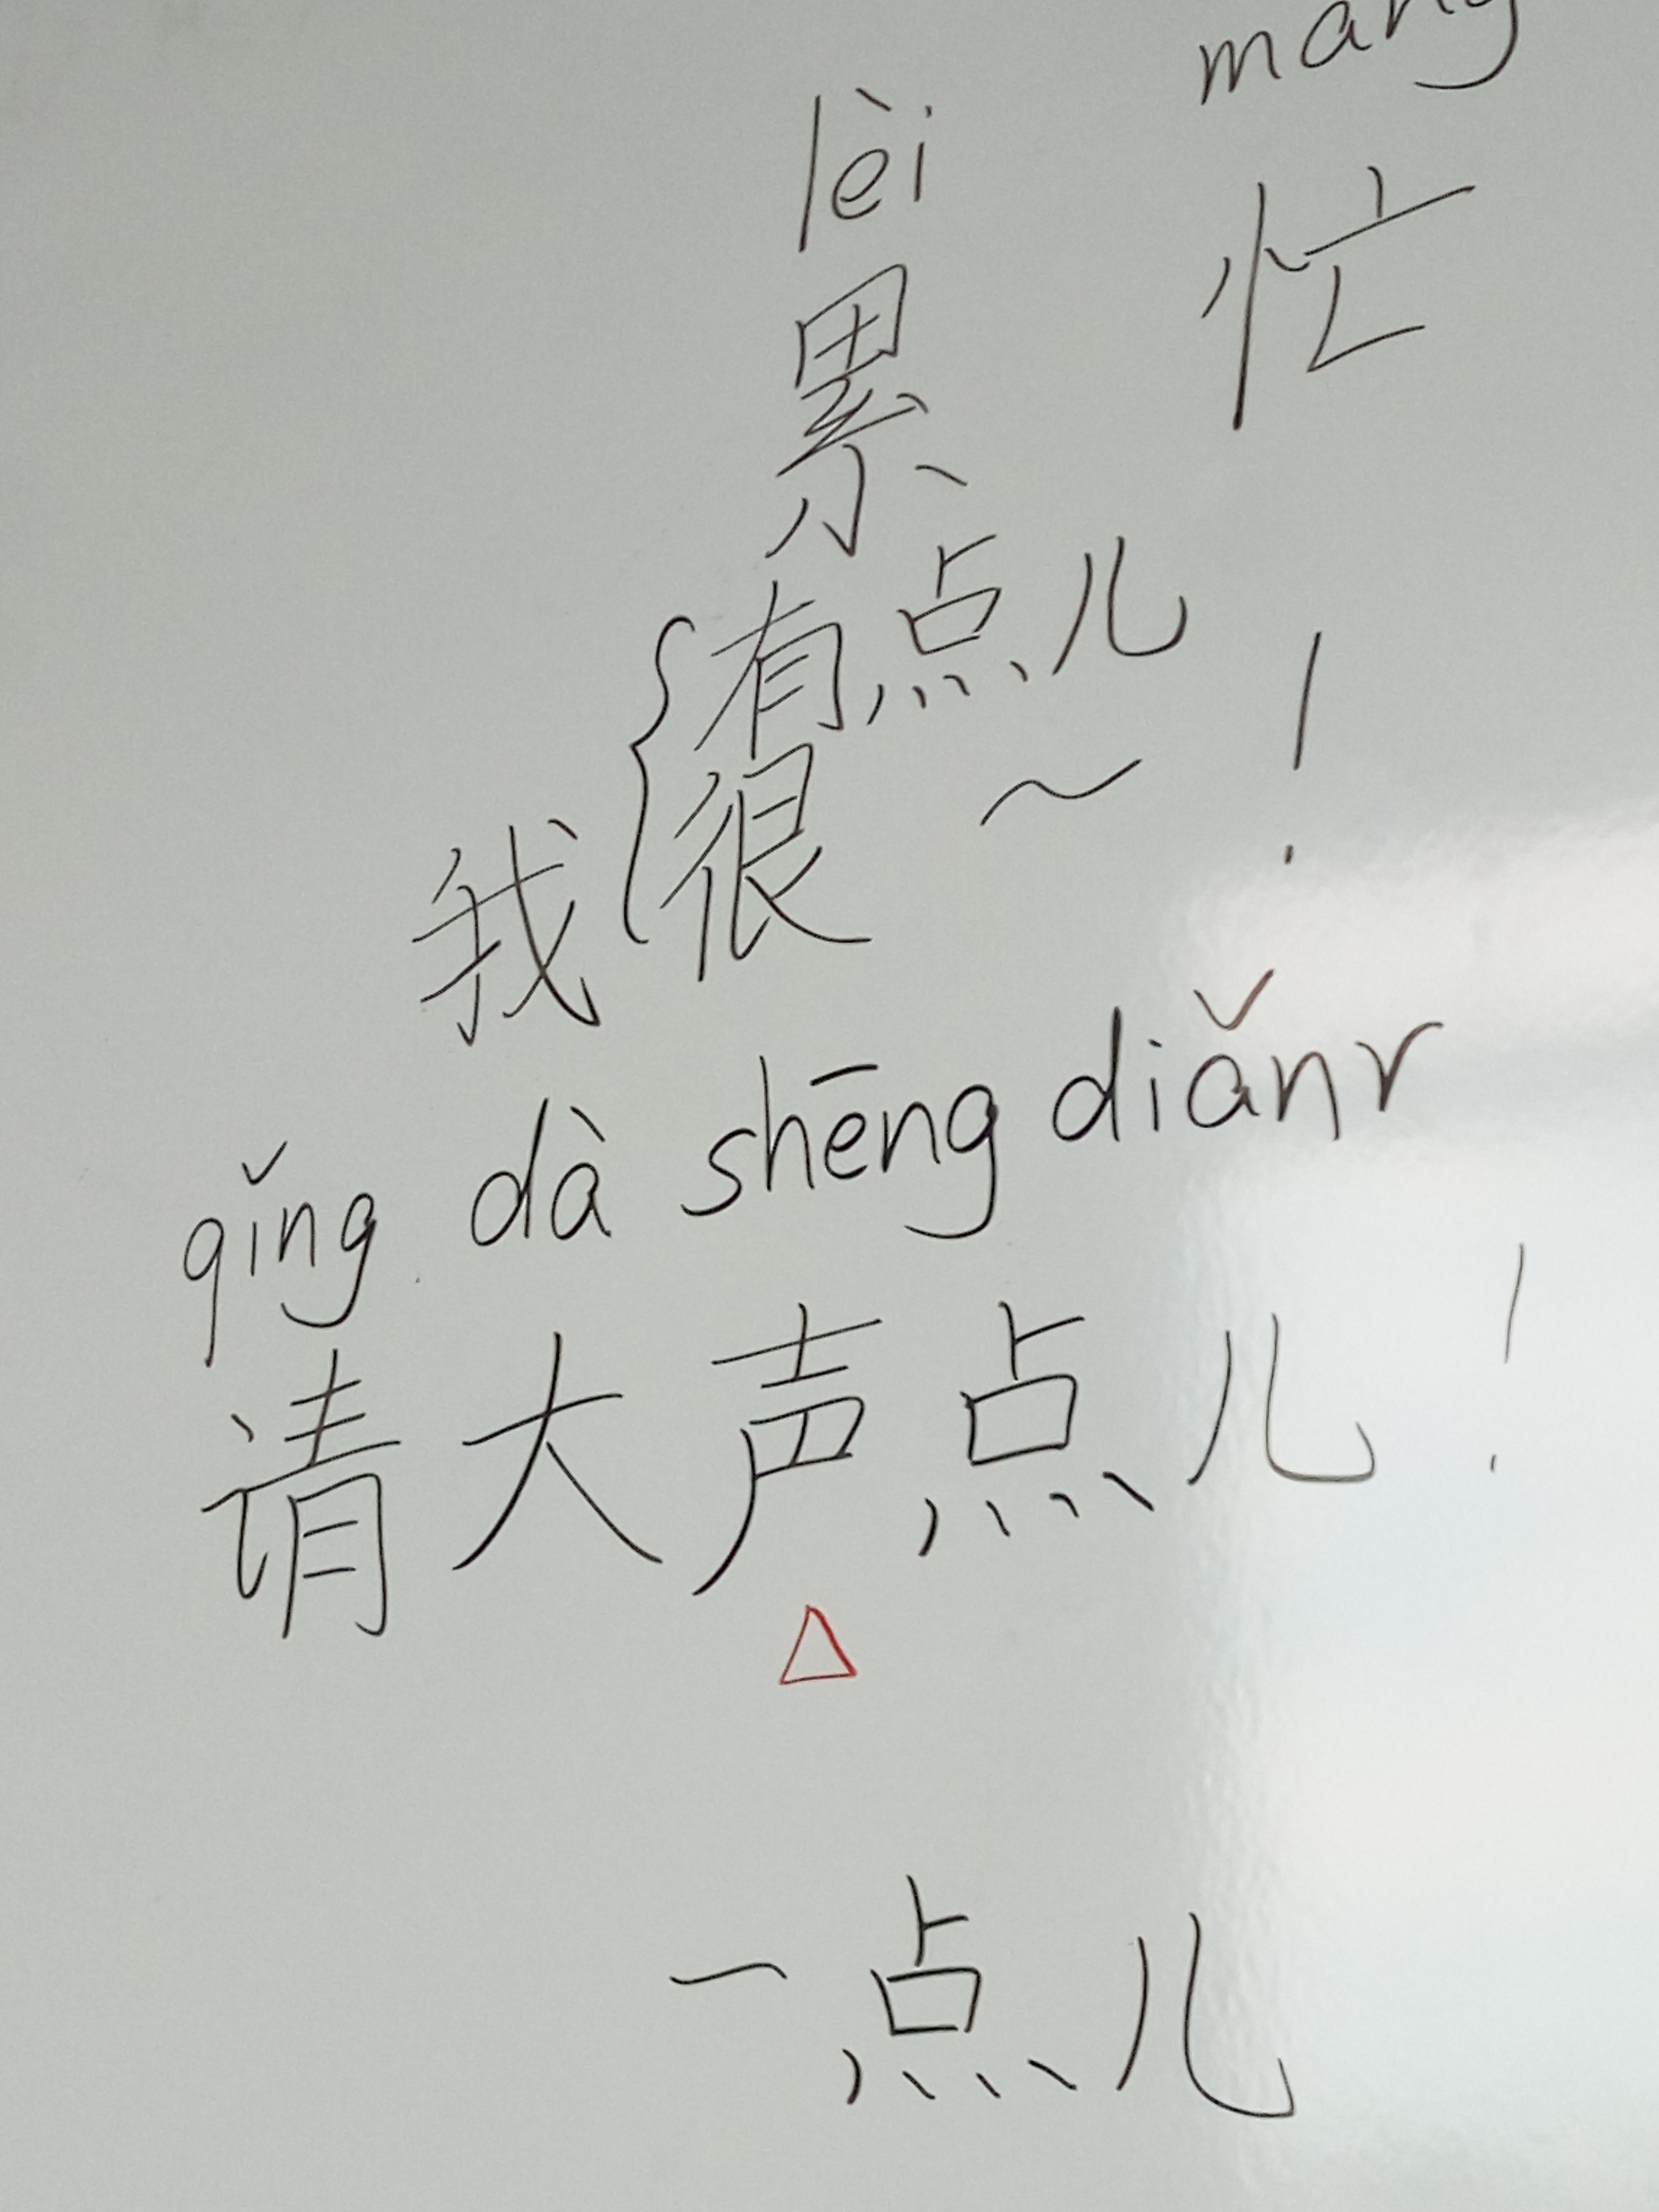 lèi mang
累 忙
有点儿
我 { 很 ~ !
qǐng dà shēng diǎnr
请大声点儿!
一点儿